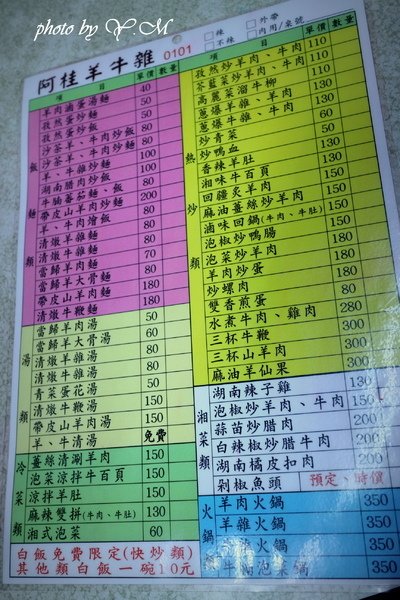 photo by Y.M
阿桂羊牛雜 0101
□辣 □外帶
□不辣 □內用/桌號
項 目 單價 數量
飯麵類
羊肉滷蛋湯麵 40
孜然蛋炒麵 50
孜然蛋炒飯 50
沙茶羊、牛肉炒飯 80
沙茶羊、牛肉炒麵 100
羊、牛雜炒麵 100
湖南腊肉炒飯 80
牛腩蕃茄麵、飯
帶皮山羊肉炒麵 200
羊、牛肉燴飯 80
清燉羊雜麵
清燉牛雜麵 70
當歸羊肉麵 80
當歸羊大骨麵
帶皮山羊肉麵 180
清燉牛鞭麵 180
湯類
當歸羊肉湯 50
當歸羊大骨湯 60
清燉羊雜湯 80
清燉牛雜湯 80
青菜蛋花湯 50
清燉牛鞭湯 150
帶皮山羊肉湯 150
羊、牛清湯 免費
冷菜類
薑絲清涮羊肉 150
泡菜涼拌牛百頁 150
涼拌羊肚 150
麻辣雙拼(牛肉、牛肚) 130
湘式泡菜 60
白飯免費限定(快炒類)
其他類白飯一碗10元
項 目 單價 數量
熱炒類
孜然炒羊肉、牛肉 110
芥藍菜炒羊肉、牛肉 110
高麗菜溜牛柳 110
蔥爆羊肉、牛肉
蔥爆牛雜、羊雜 130
炒青菜 50
炒鴨血
香辣羊肚 130
湘味牛百頁
回鑊炙羊肉 150
麻油薑絲炒羊肉 150
滷味回鍋(牛肉、牛肚) 150
泡椒炒鴨腸
泡菜炒羊肉 180
羊肉炒蛋
炒螺肉
雙香煎蛋
水煮牛肉、雞肉 280
三杯牛鞭 300
三杯山羊肉
麻油羊仙果 300
湘菜類
湖南辣子雞 130
泡椒炒羊肉、牛肉 150
蒜苗炒腊肉 200
白辣椒炒腊牛肉 200
湖南橘皮扣肉 200
剁椒魚頭 預定、時價
火鍋
羊肉火鍋 350
羊雜火鍋 350